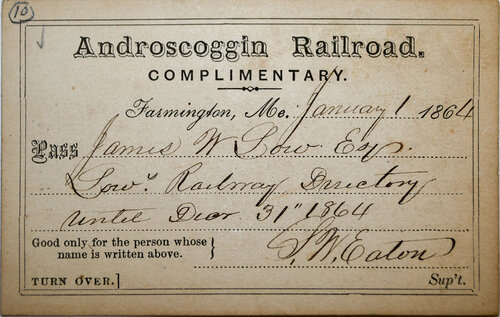 10
Androscoggin Railroad.
COMPLIMENTARY.
Farmington, Me. January 1 1864
Pass James W Low Esq.
Low's Railway Directory
until Decr 31" 1864
Good only for the person whose
name is written above.
S. W. Eaton
TURN OVER. Sup't.